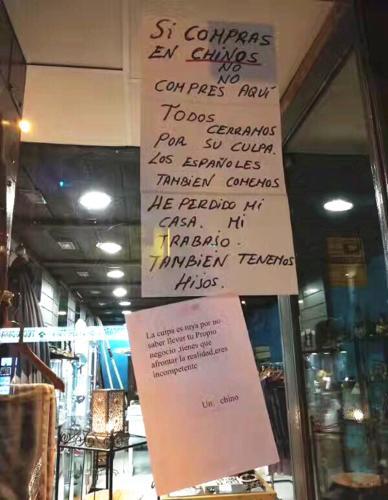 SI COMPRAS
EN CHINOS
NO
NO
COMPRES AQUÍ
TODOS
CERRAMOS
POR SU CULPA.
LOS ESPAÑOLES
TAMBIEN COMEMOS
HE PERDIDO MI
CASA. MI
TRABAJO.
TAMBIEN TENEMOS
HIJOS.
La culpa es tuya por no
saber llevar tu Propio
negocio ,tienes que
afrontar la realidad,eres
incompetente
Un chino